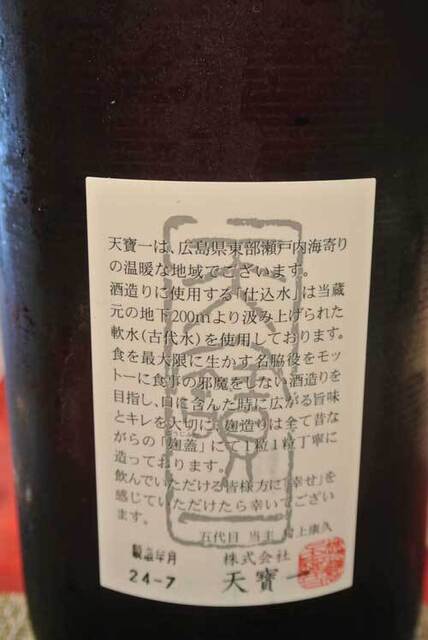 天寶一は、広島県東部瀬戸内海寄り
の温暖な地域でございます。
酒造りに使用する「仕込水」は当蔵
元の地下200mより汲み上げられた
軟水(古代水)を使用しております。
食を最大限に生かす名脇役をモッ
トーに食事の邪魔をしない酒造りを
目指し、口に含んだ時に広がる旨味
とキレを大切に、麹造りは全て昔な
がらの「麹蓋」にて1粒1粒丁寧に
造っております。
飲んでいただける皆様方に「幸せ」を
感じていただけたら幸いでござい
ます。
五代目 当主 村上康久
製造年月
24-7
株式会社
天寶一